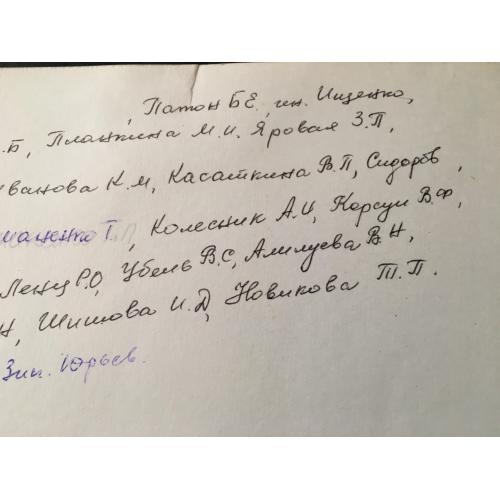 , Патон Б.Е., ин. Ищенко,
.Б, Платкина М.И. Яровая З.П,
Иванова К.М, Касаткина В.П, Сидоров,
маценко Т, Колесник А.И, Корсун В.Ф,
Р.О, В.С, Алилуева В.Н,
Н, Шишова И.Д, Новикова Т.П.
Зин. Юрьев.